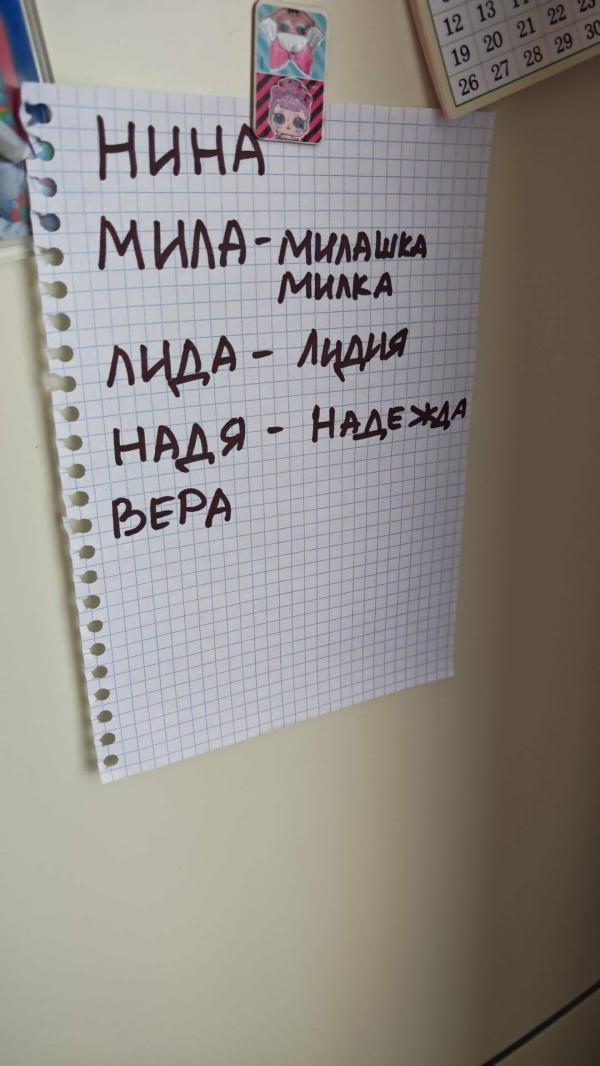 НИНА
МИЛА - МИЛАШКА
МИЛКА
ЛИДА - ЛИДИЯ
НАДЯ - НАДЕЖДА
ВЕРА
12 13
19 20 21 22 23
26 27 28 29 30